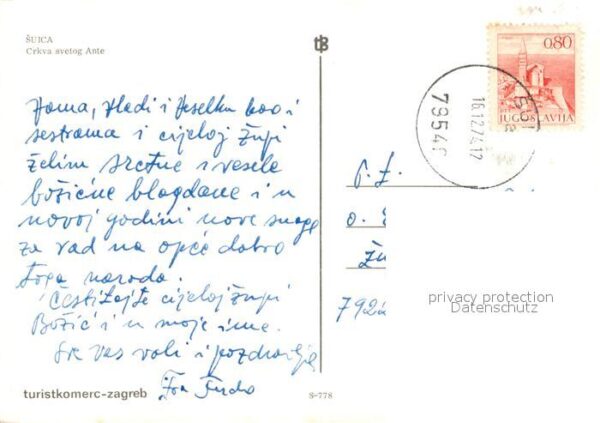 ŠUICA
Crkva svetog Ante
tB
0.80
JUGOSLAVIJA
16.12.74.17
7954
i kao i
sestrama i cijeloj župi
želim sretne i vesele
božićne blagdane i u
novoj godini nove snage
za rad na opće dobro
toga naroda.
Čestitajte cijeloj župi
Božić i u moje ime.
Sve vas voli i pozdravlja
Fra
P. Z.
O.
Žu
792
privacy protection
Datenschutz
turistkomerc-zagreb
S-778